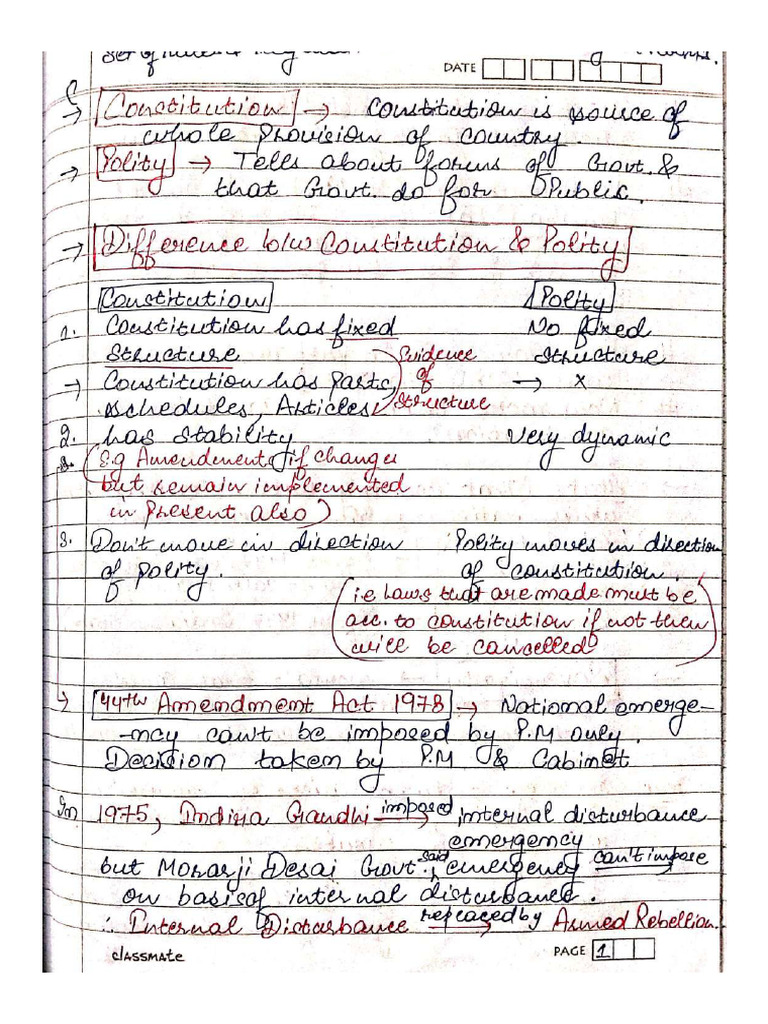 Set of
DATE
→ Constitution → Constitution is source of
whole Provision of country.
→ Polity → Tells about forms of Govt. &
that Govt. do for Public.
→ Difference b/w Constitution & Polity
Constitution Polity
1. Constitution has fixed No fixed
Structure Structure
→ Constitution has Parts, → x
schedules, Articles
Evidence
of
Structure
2. has stability Very dynamic
(E.g Amendment, if change
but remain implemented
in Present also)
3. Don't move in direction Polity moves in direction
of polity. of constitution.
(i.e Laws that are made must be
acc. to constitution if not then
will be cancelled)
→ 44th Amendment Act 1978 → National emerge-
-ncy can't be imposed by P.M only.
Decision taken by P.M & Cabinet
In 1975, Indira Gandhi imposed → internal disturbance
emergency
but Morarji Desai Govt. said, emergency can't impose →
on basis of internal disturbance.
∴ Internal Disturbance replaced by → Armed Rebellion.
classmate PAGE 1